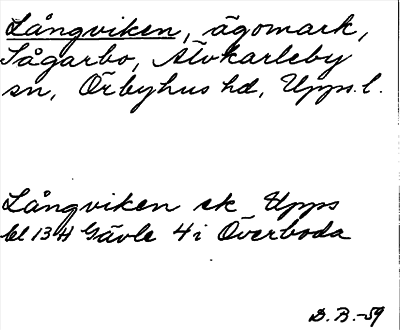 Långviken, ägomark,
Sågarbo, Älvkarleby
sn, Örbyhus hd, Upps. l.
Långviken ek Upps
bl 13 H Gävle 4 i Överboda
D. B. -59